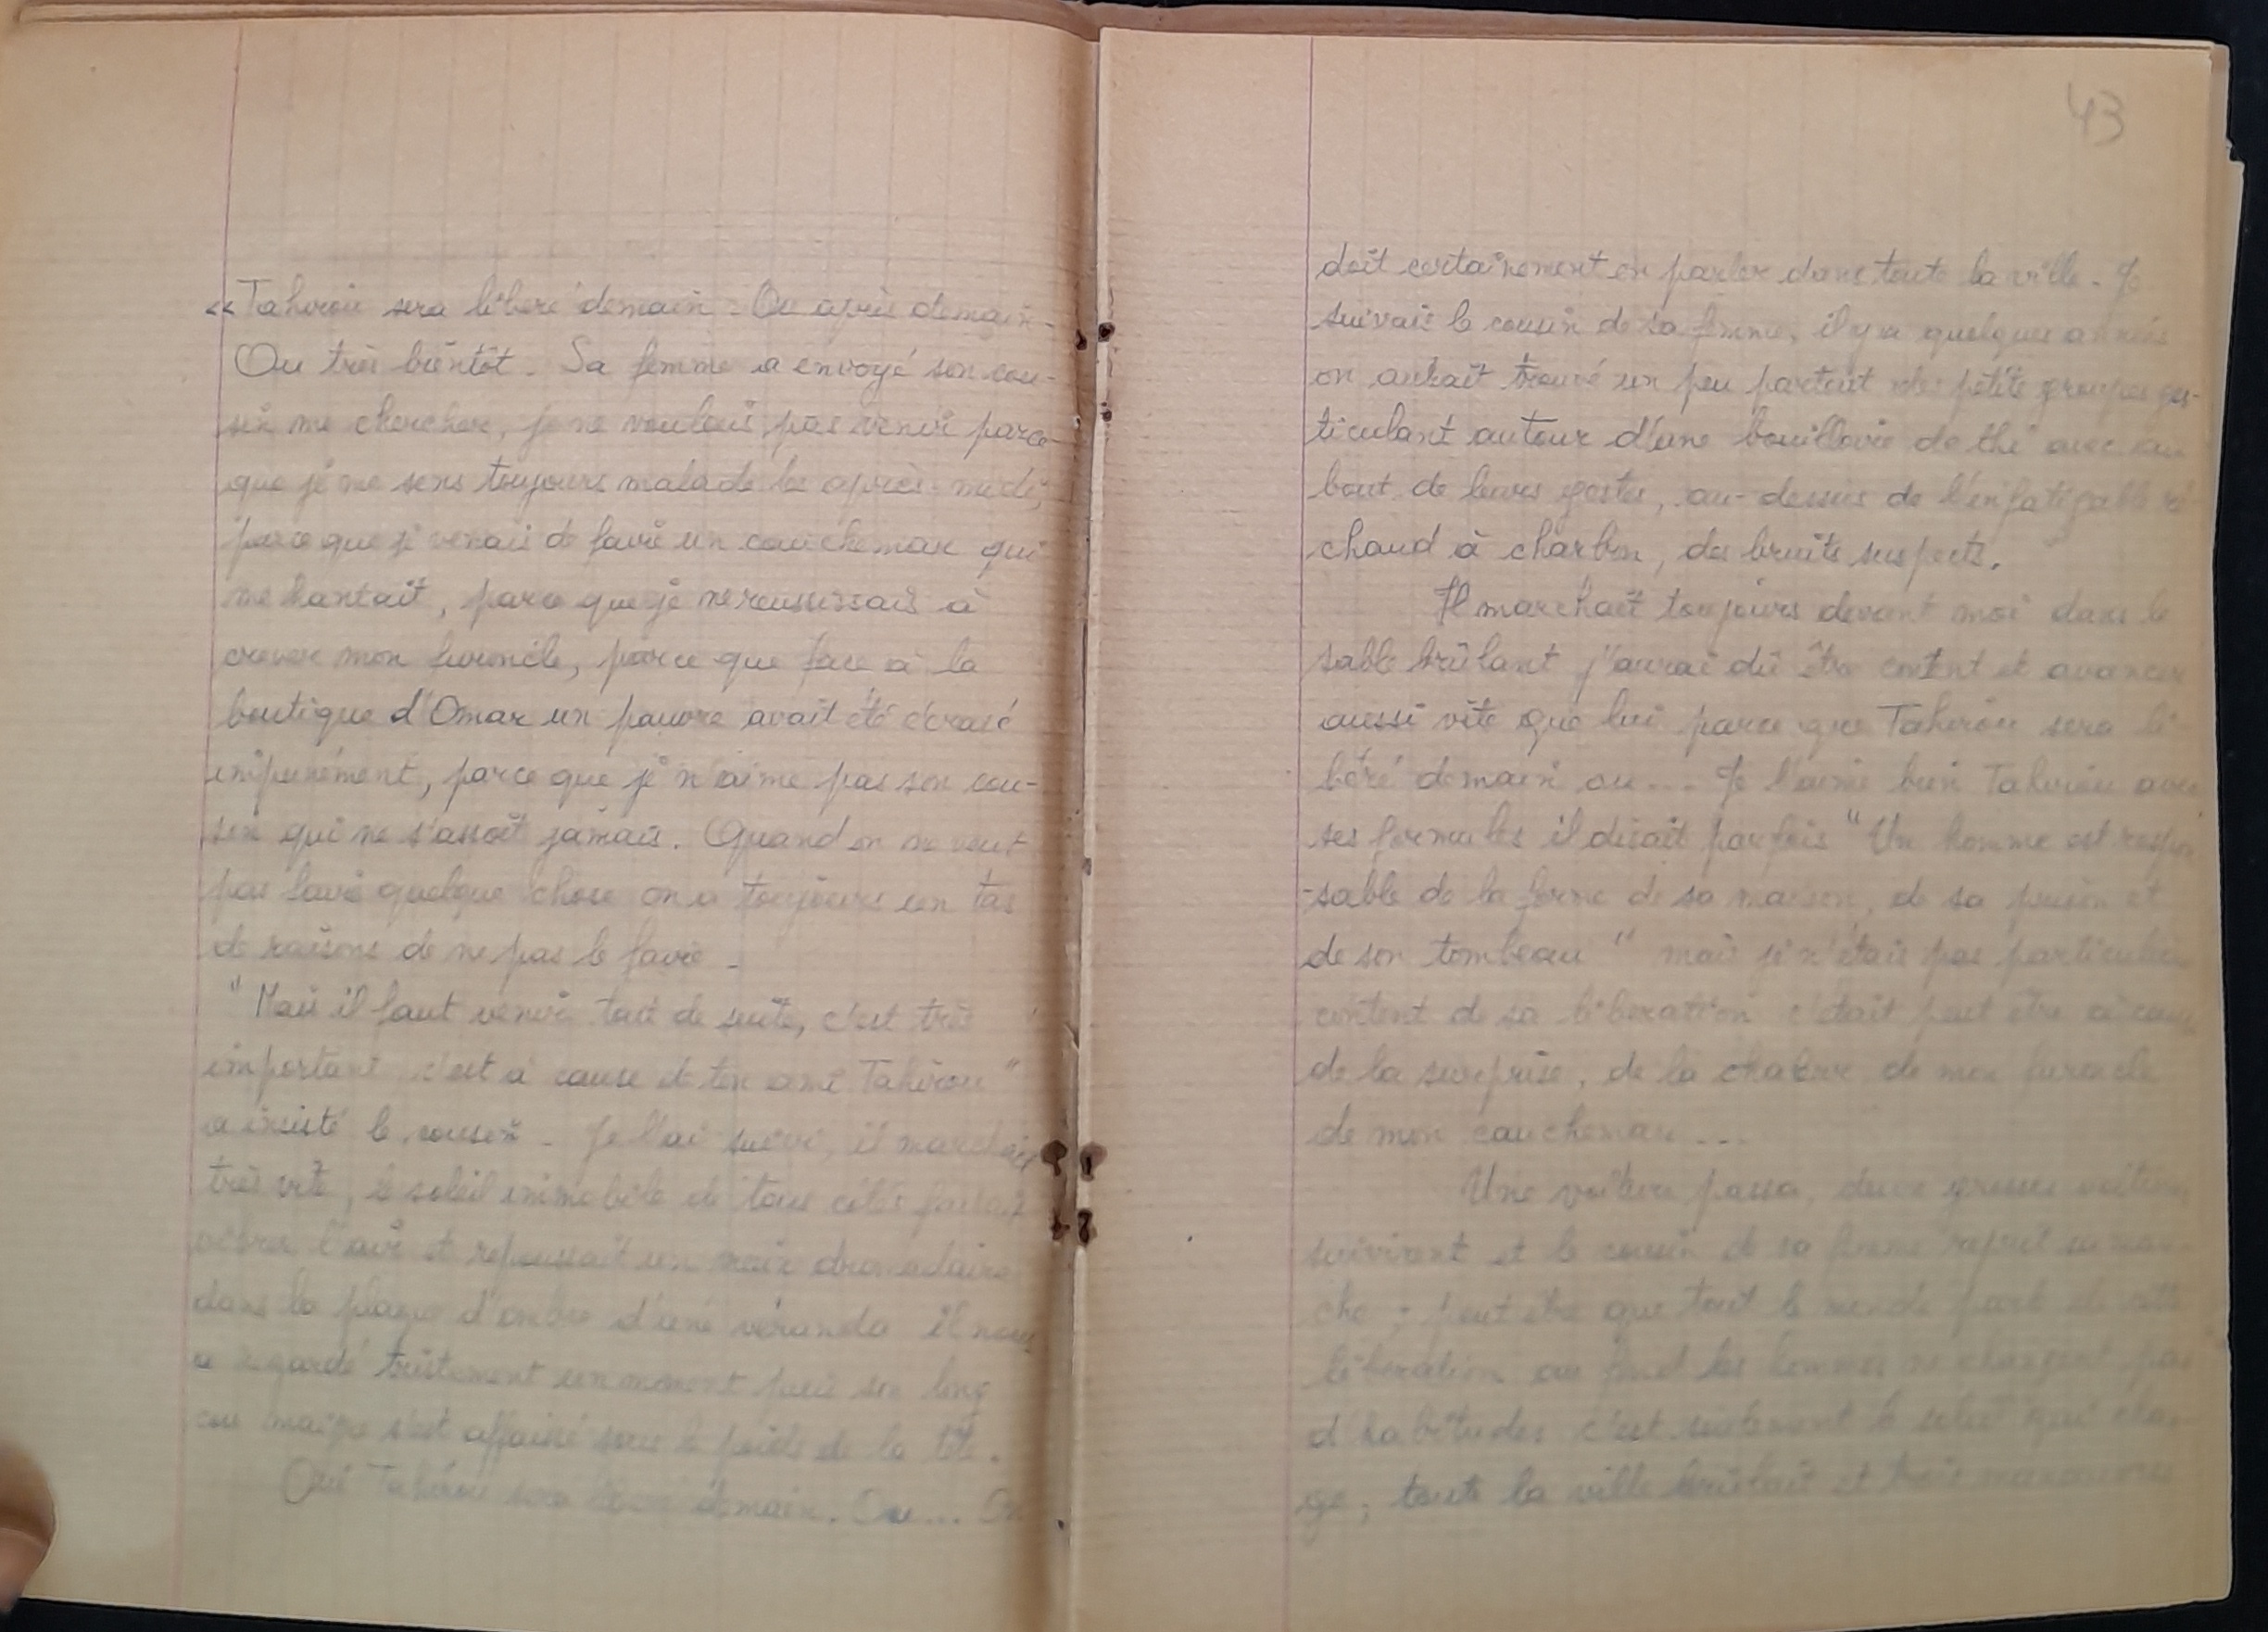 «Tahirou sera libéré demain. Ou après demain.
Ou très bientôt. Sa femme a envoyé son cou-
sin me chercher, je ne voulais pas venir parce
que je me sens toujours malade les après-midi,
parce que je venais de faire un cauchemar qui
me hantait, parce que je ne reussissais à
crever mon furoncle, parce que face à la
boutique d'Omar un pauvre avait été écrasé
impunément, parce que je n'aime pas son cou-
sin qui ne s'assoit jamais. Quand on ne veut
pas faire quelque chose on a toujours un tas
de raisons de ne pas le faire.
"Mais il faut venir tout de suite, c'est très
important c'est à cause de ton ami Tahirou"
a insisté le cousin. Je l'ai suivi, il marchait
très vite, le soleil immobile de tous côtés faisait
vibrer l'air et repoussait un vieux dromadaire
dans la plaque d'ombre d'une véranda il nous
a regardé tristement un moment puis son long
cou maigre s'est affaissé sous le poids de la tête.
Oui Tahirou sera libéré demain. Ou... On
43
doit certainement en parler dans toute la ville. Je
suivais le cousin de sa femme, il y a quelques années
on aurait trouvé un peu partout des petits groupes ges-
ticulant autour d'une bouilloire de thé avec au
bout de leurs gestes, au-dessus de l'infatigable ré-
chaud à charbon, des bruits suspects.
Il marchait toujours devant moi dans le
sable brûlant j'aurai dû être content et avancer
aussi vite que lui parce que Tahirou sera li-
béré demain ou... Je l'aime bien Tahirou avec
ses formules il disait parfois "Un homme est respon
-sable de la forme de sa maison, de sa prison et
de son tombeau" mais je n'étais pas particulier
content de sa libération c'était peut être à cause
de la surprise, de la chaleur de mon furoncle
de mon cauchemar...
Une voiture passa, deux grosses voitures
suivirent et le cousin de sa femme reprit sa mar-
che ; peut être que tout le monde parle de cette
libération au fond les hommes ne changent pas
d'habitudes c'est seulement le soleil qui chan-
ge; toute la ville brûlait et trois manoeuvres